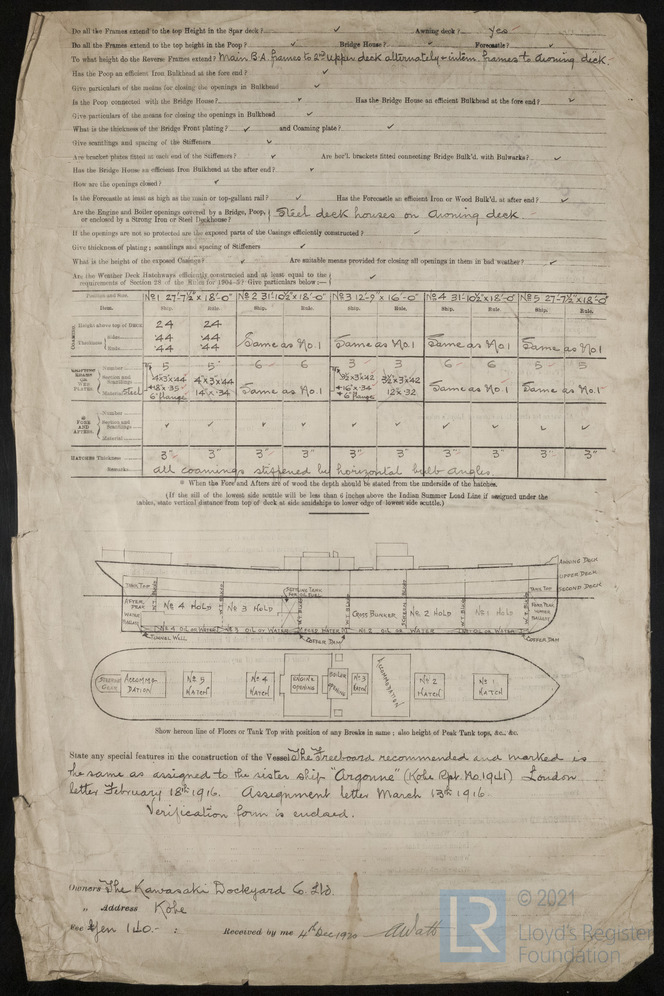 Do all the Frames extend to the top Height in the Spar deck? ✓ Awning deck? yes
Do all the Frames extend to the top height in the Poop? ✓ Bridge House? ✓ Forecastle? ✓
To what height do the Reverse Frames extend? Main B.A. frames to 2nd upper deck alternately & interm. frames to Awning deck.
Has the Poop an efficient Iron Bulkhead at the fore end? ✓
Give particulars of the means for closing the openings in Bulkhead ✓
Is the Poop connected with the Bridge House? ✓ Has the Bridge House an efficient Bulkhead at the fore end? ✓
Give particulars of the means for closing the openings in Bulkhead ✓
What is the thickness of the Bridge Front plating? ✓ and Coaming plate? ✓
Give scantlings and spacing of the Stiffeners ✓
Are bracket plates fitted at each end of the Stiffeners? ✓ Are hor'l. brackets fitted connecting Bridge Bulk'd. with Bulwarks? ✓
Has the Bridge House an efficient Iron Bulkhead at the after end? ✓
How are the openings closed? ✓
Is the Forecastle at least as high as the main or top-gallant rail? ✓ Has the Forecastle an efficient Iron or Wood Bulk'd. at after end? ✓
Are the Engine and Boiler openings covered by a Bridge, Poop,
or enclosed by a Strong Iron or Steel Deckhouse? Steel deck houses on Awning deck
If the openings are not so protected are the exposed parts of the Casings efficiently constructed? ✓
Give thickness of plating; scantlings and spacing of Stiffeners ✓
What is the height of the exposed Casings? ✓ Are suitable means provided for closing all openings in them in bad weather? ✓
Are the Weather Deck Hatchways efficiently constructed and at least equal to the
requirements of Section 28 of the Rules for 1904-5? Give particulars below:— ✓
Position and Size. No 1 27'-7½" x 18'-0" No 2 31'-10½" x 18'-0" No 3 12'-9" x 16'-0" No 4 31'-10½" x 18'-0" No 5 27'-7½" x 18'-0"
Item. Ship. Rule. Ship. Rule. Ship. Rule. Ship. Rule. Ship. Rule.
COAMING Height above top of DECK 24 24
Thickness Sides .44 .44 Same as No.1 Same as No.1 Same as No.1 Same as No.1
Ends .44 .44
SHIFTING BEAMS OR WEB PLATES Number 5 5 6 6 3 3 6 6 5 5
Section and Scantlings 4x3x.44 4x3x.44 Same as No.1 3½x3x.42 3½x3x.42 Same as No.1 Same as No.1
Material Steel 18x.35 14x.34 16x.34 12x.32
6" flange 6" flange
FORE AND AFTERS. Number
Section and Scantlings ✓ ✓ ✓ ✓ ✓ ✓ ✓ ✓ ✓ ✓
Material
HATCHES Thickness 3" 3" 3" 3" 3" 3" 3" 3" 3" 3"
Remarks all coamings stiffened by horizontal bulb angles.
* When the Fore and Afters are of wood the depth should be stated from the underside of the hatches.
(If the sill of the lowest side scuttle will be less than 6 inches above the Indian Summer Load Line if assigned under the
tables, state vertical distance from top of deck at side amidships to lower edge of lowest side scuttle.)
AWNING DECK
UPPER DECK
SECOND DECK
TANK TOP W.T. BULKD SETTLING TANK W.T. BULKD SCREEN BULKD W.T. BULKD TANK TOP
AFTER PEAK WATER BALLAST No 4 HOLD No 3 HOLD CROSS BUNKER No 2 HOLD No 1 HOLD FORE PEAK WATER BALLAST
No 4 OIL OR WATER No 3 OIL OR WATER FEED WATER No 2 OIL OR WATER No 1 OIL OR WATER
TUNNEL WELL COFFER DAM COFFER DAM
STEERING GEAR ACCOMMODATION No 5 HATCH No 4 HATCH ENGINE OPENING BOILER OPENING No 3 HATCH ACCOMMODATION No 2 HATCH No 1 HATCH
Show hereon line of Floors or Tank Top with position of any Breaks in same; also height of Peak Tank tops, &c., &c.
State any special features in the construction of the Vessel The Freeboard recommended and marked is
the same as assigned to the sister ship "Argonne" (Kobe Rpt. No. 1941) London
letter February 18th 1916. Assignment letter March 13th 1916.
Verification form is enclosed.
Owners The Kawasaki Dockyard Co Ltd.
" Address Kobe
Fee Yen 140.- : Received by me 4th Dec 1920 A Watt
© 2021
LR Lloyd's Register
Foundation